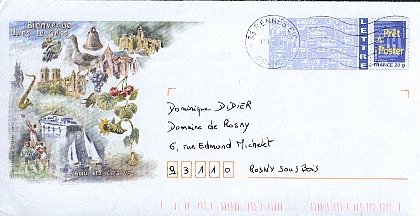 Bienvenue
dans le gers
LETTRE
Prêt
à
Poster
FRANCE 20 g
Dominique DIDIER
Domaine de Rosny
6, rue Edmund Michelet
93110 ROSNY SOUS BOIS